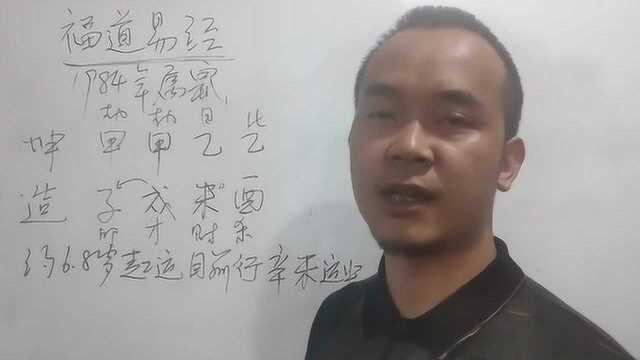 福道易经
1984年属鼠
劫 劫 日 比
坤 甲 甲 乙 乙
造 子 戌 未 酉
才 杀
约6.8岁起运目前行辛未运